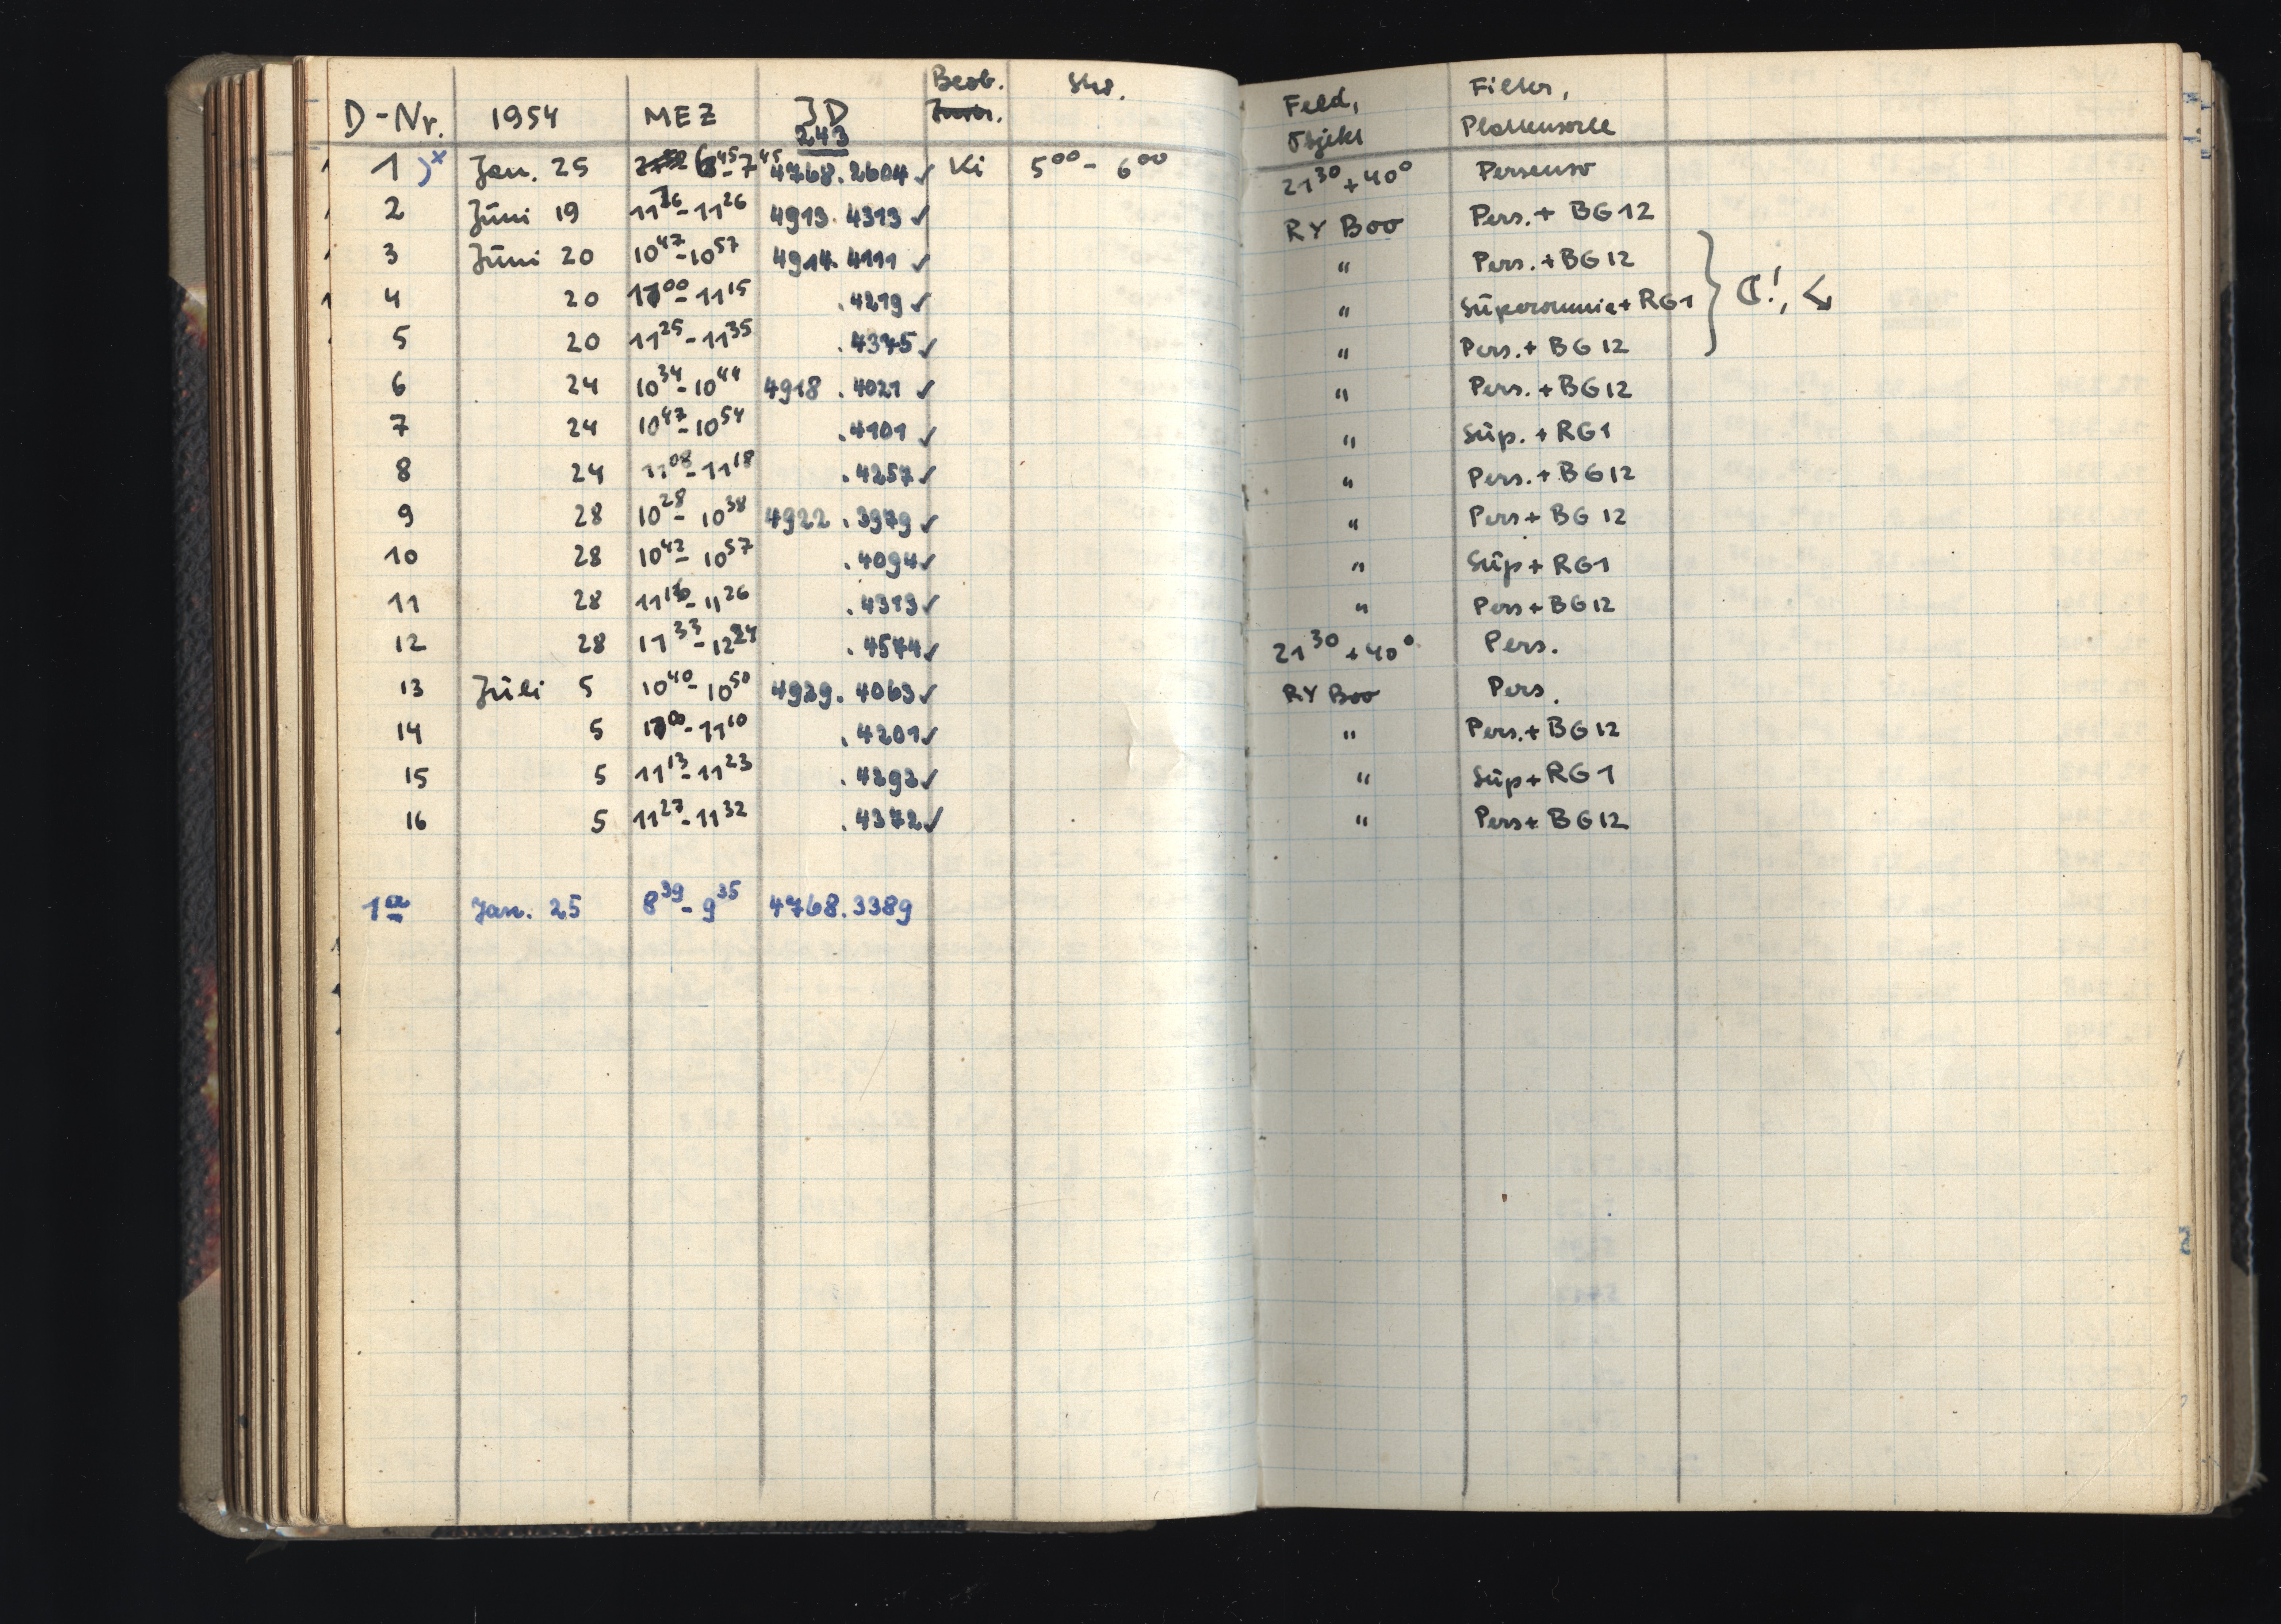 Beob. Stw. Filter,
D-Nr. 1954 MEZ JD Feld,
243 Objekt Plattensorte
1)x Jan. 25 6⁴⁵-7⁴⁵ 4768.2604 ✓ Ki 5⁰⁰ - 6⁰⁰ 21³⁰ + 40° Persenso
2 Jŭni 19 11¹⁶-11²⁶ 4913.4313 ✓ RY Boo Pers. + BG12
3 Jŭni 20 10⁴⁷-10⁵⁷ 4914.4111 ✓ " Pers. + BG12
4 20 11⁰⁰-11¹⁵ .4219 ✓ " + RG1 } ☾!,
5 20 11²⁵-11³⁵ .4375 ✓ " Pers. + BG12
6 24 10³⁴-10⁴⁴ 4918.4021 ✓ " Pers. + BG12
7 24 10⁴⁷-10⁵⁴ .4101 ✓ " Sŭp. + RG1
8 24 11⁰⁸-11¹⁸ .4257 ✓ " Pers. + BG12
9 28 10²⁸-10³⁸ 4922.3979 ✓ " Pers + BG12
10 28 10⁴²-10⁵⁷ .4094 ✓ " Sŭp + RG1
11 28 11¹⁶-11²⁶ .4313 ✓ " Pers + BG12
12 28 11³³-12²⁴ .4574 ✓ 21³⁰ + 40° Pers.
13 Jŭli 5 10⁴⁰-10⁵⁰ 4929.4063 ✓ RY Boo Pers.
14 5 11⁰⁰-11¹⁰ .4201 ✓ " Pers. + BG12
15 5 11¹³-11²³ .4292 ✓ " Sŭp + RG1
16 5 11²⁷-11³² .4372 ✓ " Pers + BG12
1a Jan. 25 8³⁹-9³⁵ 4768.3389